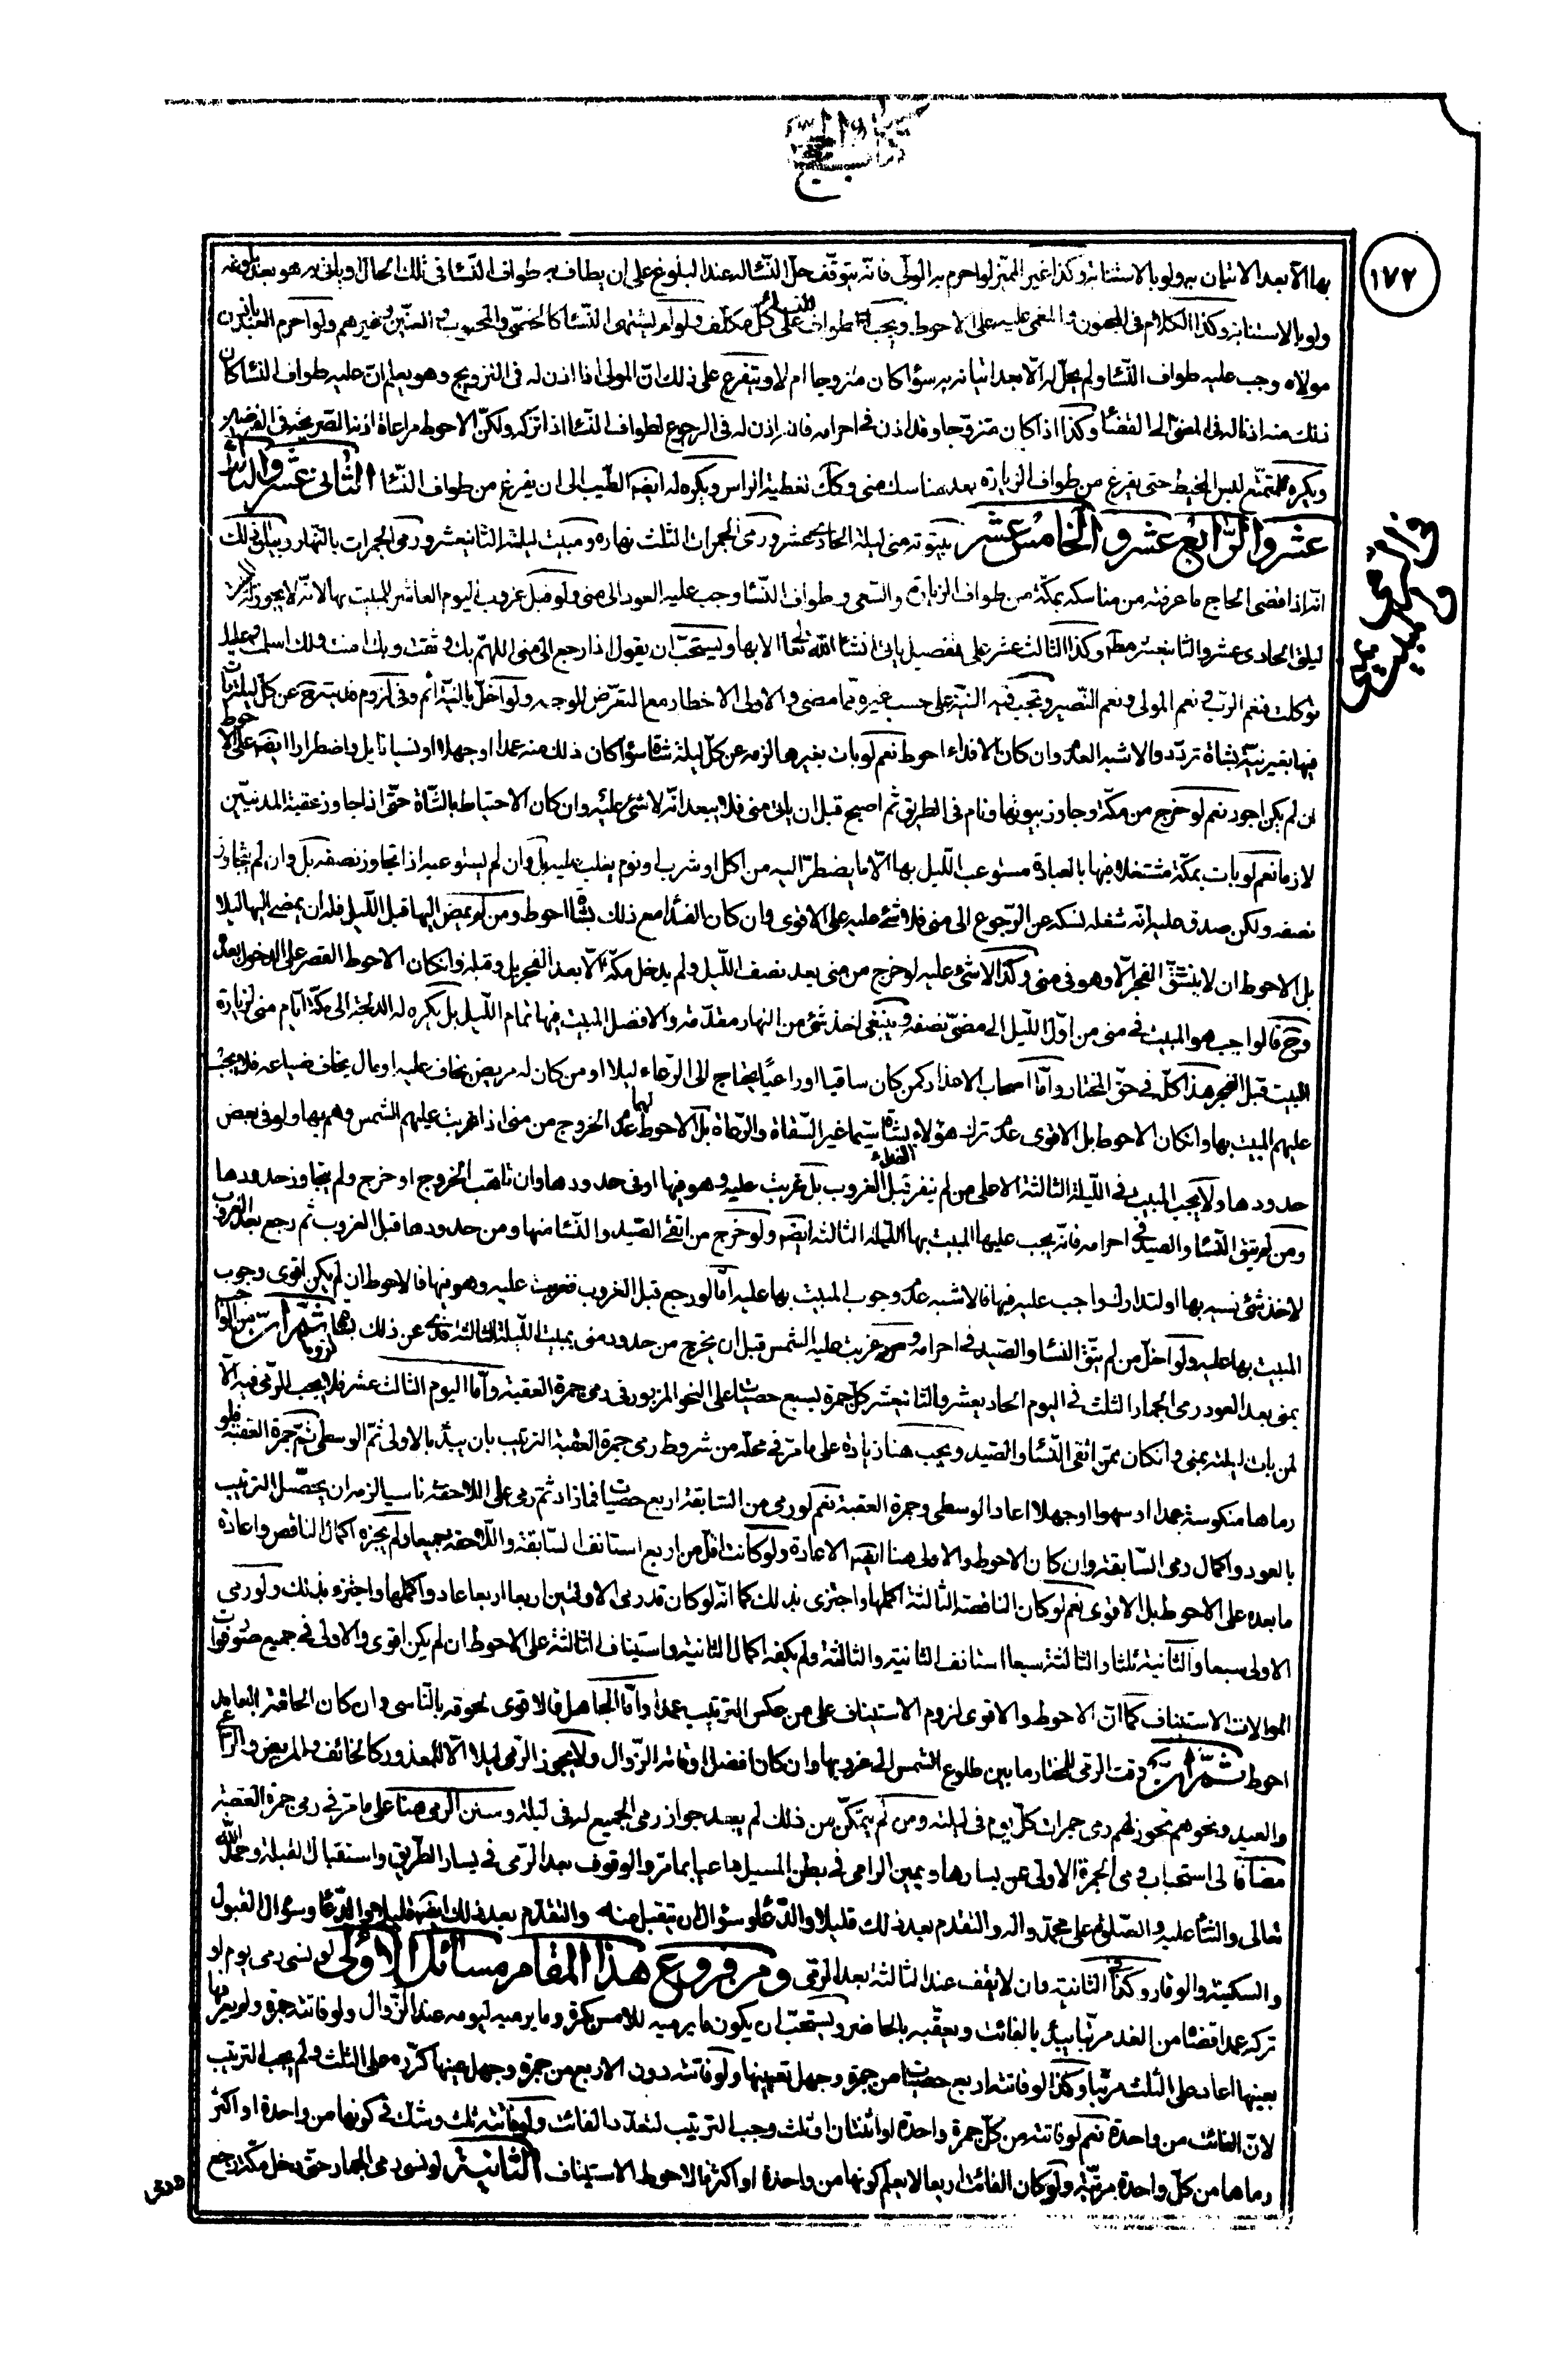 كتاب الحج
١٧٢
بها الا بعد الاتيان به ولو بالاستنابة وكذا غير المميز لو احرم به الولى فانه يتوقف حل النسا له عند البلوغ على ان يطاف به طواف النسا فى ذلك الحال او ياتى به هو بعد بلوغه
ولو بالاستنابة وكذا الكلام فى المجنون والمغمى عليه على الاحوط ويجب طواف النساء على كل مكلف ولو لم يشتهى النسا كالخصى والمجبوب والعنين وغيرهم ولو احرم العبد باذن
مولاه وجب عليه طواف النسا ولم يحل له الا بعد اتيانه به سواكان متزوجا ام لا ويتفرع على ذلك ان المولى اذا اذن له فى التزويج وهو يعلم ان عليه طواف النسا كان
ذلك منه اذنا له فى المضى الى القضا وكذا اذا كان متزوجا وقد اذن فى احرامه فانه اذن له فى الرجوع لطواف النسا اذا تركه ولكن الاحوط مراعاة اذنه الصريحة فى
ويكره للمتمتع لبس المخيط حتى يفرغ من طواف الزيارة بعد مناسك منى وكك تغطية الراس ويكره له ايضا الطيب الى ان يفرغ من طواف النسا الثانى عشر والثالث
عشر والرابع عشر والخامس عشر بيتوتة منى ليلة الحاديعشر ورمى الجمرات الثلث نهاره ومبيت ليلة الثانيعشر ورمى الجمرات بالنهار وبيان ذلك
انه اذا قضى الحاج ما عرفته من مناسكه بمكة من طواف الزيارة والسعى وطواف النسا وجب عليه العود الى منى ولو قبل غروب اليوم العاشر للمبيت بها لانه لا يجوز له
ليلتى الحادى عشر والثانيعشر مط وكذا الثالث عشر على تفصيل ياتى انشا الله تعالى الا بها ويستحب ان يقول اذا رجع الى منى اللهم بك وثقت وبك امنت ولك اسلمت وعليك
توكلت فنعم الرب ونعم المولى ونعم النصير وتجب فيه النية على حسب غيره مما مضى والاولى الاخطار مع التعرض للوجه ولو اخل بالنية اثم وفى لزوم فدية عن كل ليلة بات
فيها بغير نية بشاة تردد والاشبه العدم وان كان الافداء احوط نعم لو بات بغيرها لزمه عن كل ليلة شاة سواكان ذلك منه عمدا او جهلا او نسيانا بل واضطرارا ايضا على الاحوط
ان لم يكن اجود نعم لو خرج من مكة وجاوز بيوتها ونام فى الطريق ثم اصبح قبل ان ياتى منى فلا يبعد انه لا شئ عليه وان كان الاحتياط بالشاة حتى اذا جاوز عقبة المدنيين
لازما نعم لو بات بمكة مشتغلا فيها بالعبادة مستوعب الليل بها الا ما يضطر اليه من اكل او شرب او نوم يغلب عليه بل وان لم يستوعبه اذا تجاوز نصفه بل وان لم يتجاوز
نصفه ولكن صدق عليه انه شغله نسكه عن الرجوع الى منى فلا شئ عليه على الاقوى وان كان الفدا مع ذلك بشاة احوط ومن لم يمض اليها قبل الليل فله ان يمضى اليها ليلا
بل الاحوط ان لا ينشق الفجر الا وهو فى منى وكذا لا شئ عليه لو خرج من منى بعد نصف الليل ولم يدخل مكة الا بعد الفجر بل وقبله وانكان الاحوط القصر على الدخول بعده
وح فالواجب هو المبيت فى منى من اول الليل الى مضى نصفه وينبغى اخذ شئ من النهار مقدمة والافضل المبيت فيها تمام الليل بل يكره له الدلجة الى مكة ايام منى لزيارة
البيت قبل الفجر هذا كله فى حق المختار واما اصحاب الاعذار كمن كان ساقيا او راعيا يحتاج الى الرعاء ليلا او من كان له مريض يخاف عليه او مال يخاف ضياعه فلا يجب
عليهم المبيت بها وانكان الاحوط بل الاقوى عدم ترك هؤلاء الفداء بشاة سيما غير السقاة والرعاة بل الاحوط لهما عدم الخروج من منى اذا غربت عليهم الشمس وهم بها ولو فى بعض
حدودها ولا يجب المبيت فى الليلة الثالثة الا على من لم ينفر قبل الغروب بل غربت عليه وهو فيها او فى حدودها وان تاهب للخروج او خرج ولم يتجاوز حدودها
ومن لم يتق النسا والصيد فى احرامه فانه يجب عليها المبيت بها الليلة الثالثة ايضا ولو خرج من اتقى الصيد والنسا منها ومن حدودها قبل الغروب ثم رجع بعد الغروب
لاخذ شئ نسيه بها او لتدارك واجب عليه فيها فالاشبه عدم وجوب المبيت بها عليه اما لو رجع قبل الغروب فغربت عليه وهو فيها فالاحوط ان لم يكن اقوى وجوب
المبيت بها عليه ولو اخل من لم يتق النسا والصيد فى احرامه ومن غربت عليه الشمس قبل ان يخرج من حدود منى بمبيت الليلة الثالثة فدى عن ذلك لزوما بشاة ثم ان من الواجب
بمنى بعد العود رمى الجمار الثلث فى اليوم الحاديعشر والثانيعشر كل جمرة بسبع حصيات على النحو المزبور فى رمى جمرة العقبة واما اليوم الثالث عشر فلا يجب الرمى فيه الا
لمن بات ليلته بمنى وانكان ممن اتقى النسا والصيد ويجب هنا زيادة على ما مر فى محله من شروط رمى جمرة العقبة الترتيب بان يبدء بالاولى ثم الوسطى ثم جمرة العقبة فلو
رماها منكوسة عمدا او سهوا او جهلا اعاد الوسطى وجمرة العقبة نعم لو رمى من السابقة اربع حصيات فما زاد ثم رمى على اللاحقة ناسيا لزمه ان يحصل الترتيب
بالعود واكمال رمى السابقة وان كان الاحوط والاولى هنا ايضا الاعادة ولو كانت اقل من اربع استانف السابقة واللاحقة جميعا ولم يجزه اكمال الناقص واعادة
ما بعده على الاحوط بل الاقوى نعم لو كان الناقصة الثالثة اكملها واجتزى بذلك كما انه لو كان قد رمى الاولتين اربعا اربعا عاد واكملها واجتزء بذلك ولو رمى
الاولى سبعا والثانية ثلثا والثالثة سبعا استانف الثانية والثالثة ولم يكفه اكمال الثانية واستيناف الثالثة على الاحوط ان لم يكن اقوى والاولى فى جميع صور فوات
الموالات الاستيناف كما ان الاحوط والاقوى لزوم الاستيناف على من عكس الترتيب عمدا واما الجاهل فالاقوى لحوقه بالناسى وان كان الحاقه بالعامد
احوط ثم ان وقت الرمى للمختار ما بين طلوع الشمس الى غروبها وان كان افضل اوقاته الزوال ولا يجوز الرمى ليلا الا للمعذور كالخائف والمريض والراعى
والعبيد ونحوهم فيجوز لهم رمى جمرات كل يوم فى ليلته ومن لم يتمكن من ذلك لم يبعد جواز رمى الجميع له فى ليلة وسنن الرمى هنا على ما مر فى رمى جمرة العقبة
مضافا الى استحباب رمى الجمرة الاولى عن يسارها ويمين الرامى فى بطن المسيل داعيا بما مر والوقوف بعد الرمى فى يسار الطريق واستقبال القبلة وحمد الله
تعالى والثنا عليه والصلوة على محمد واله والتقدم بعد ذلك قليلا والدعا وسؤال ان يتقبل منه والتقدم بعد ذلك ايضا قليلا والدعا وسؤال القبول
والسكينة والوقار وكذا الثانية وان لا يقف عند الثالثة بعد الرمى ومن فروع هذا المقام مسائل الاولى لو نسى رمى يوم او
تركه عمدا قضا من الغد مرتبا يبدء بالفائت ويعقبه بالحاضر ويستحب ان يكون ما يرميه للامس بكرة وما يرميه ليومه عند الزوال ولو فاتته جمرة ولم يعرفها
بعينها اعاد على الثلث مرتبا وكذا لو فاتته اربع حصيات من جمرة وجهل تعيينها ولو فاتته دون الاربع من جمرة وجهل عينها كرره على الثلث ولم يجب الترتيب
لان الفائت من واحدة نعم لو فاتته من كل جمرة واحدة او اثنتان او ثلث وجب الترتيب لتعدد الفائت ولو فاتته ثلث وشك فى كونها من واحدة او اكثر
رماها من كل واحدة مرتبة ولو كان الفائت اربعا لا يعلم كونها من واحدة او اكثر فالاحوط الاستيناف الثانية لو نسى رمى الجمار حتى دخل مكة رجع
ورمى